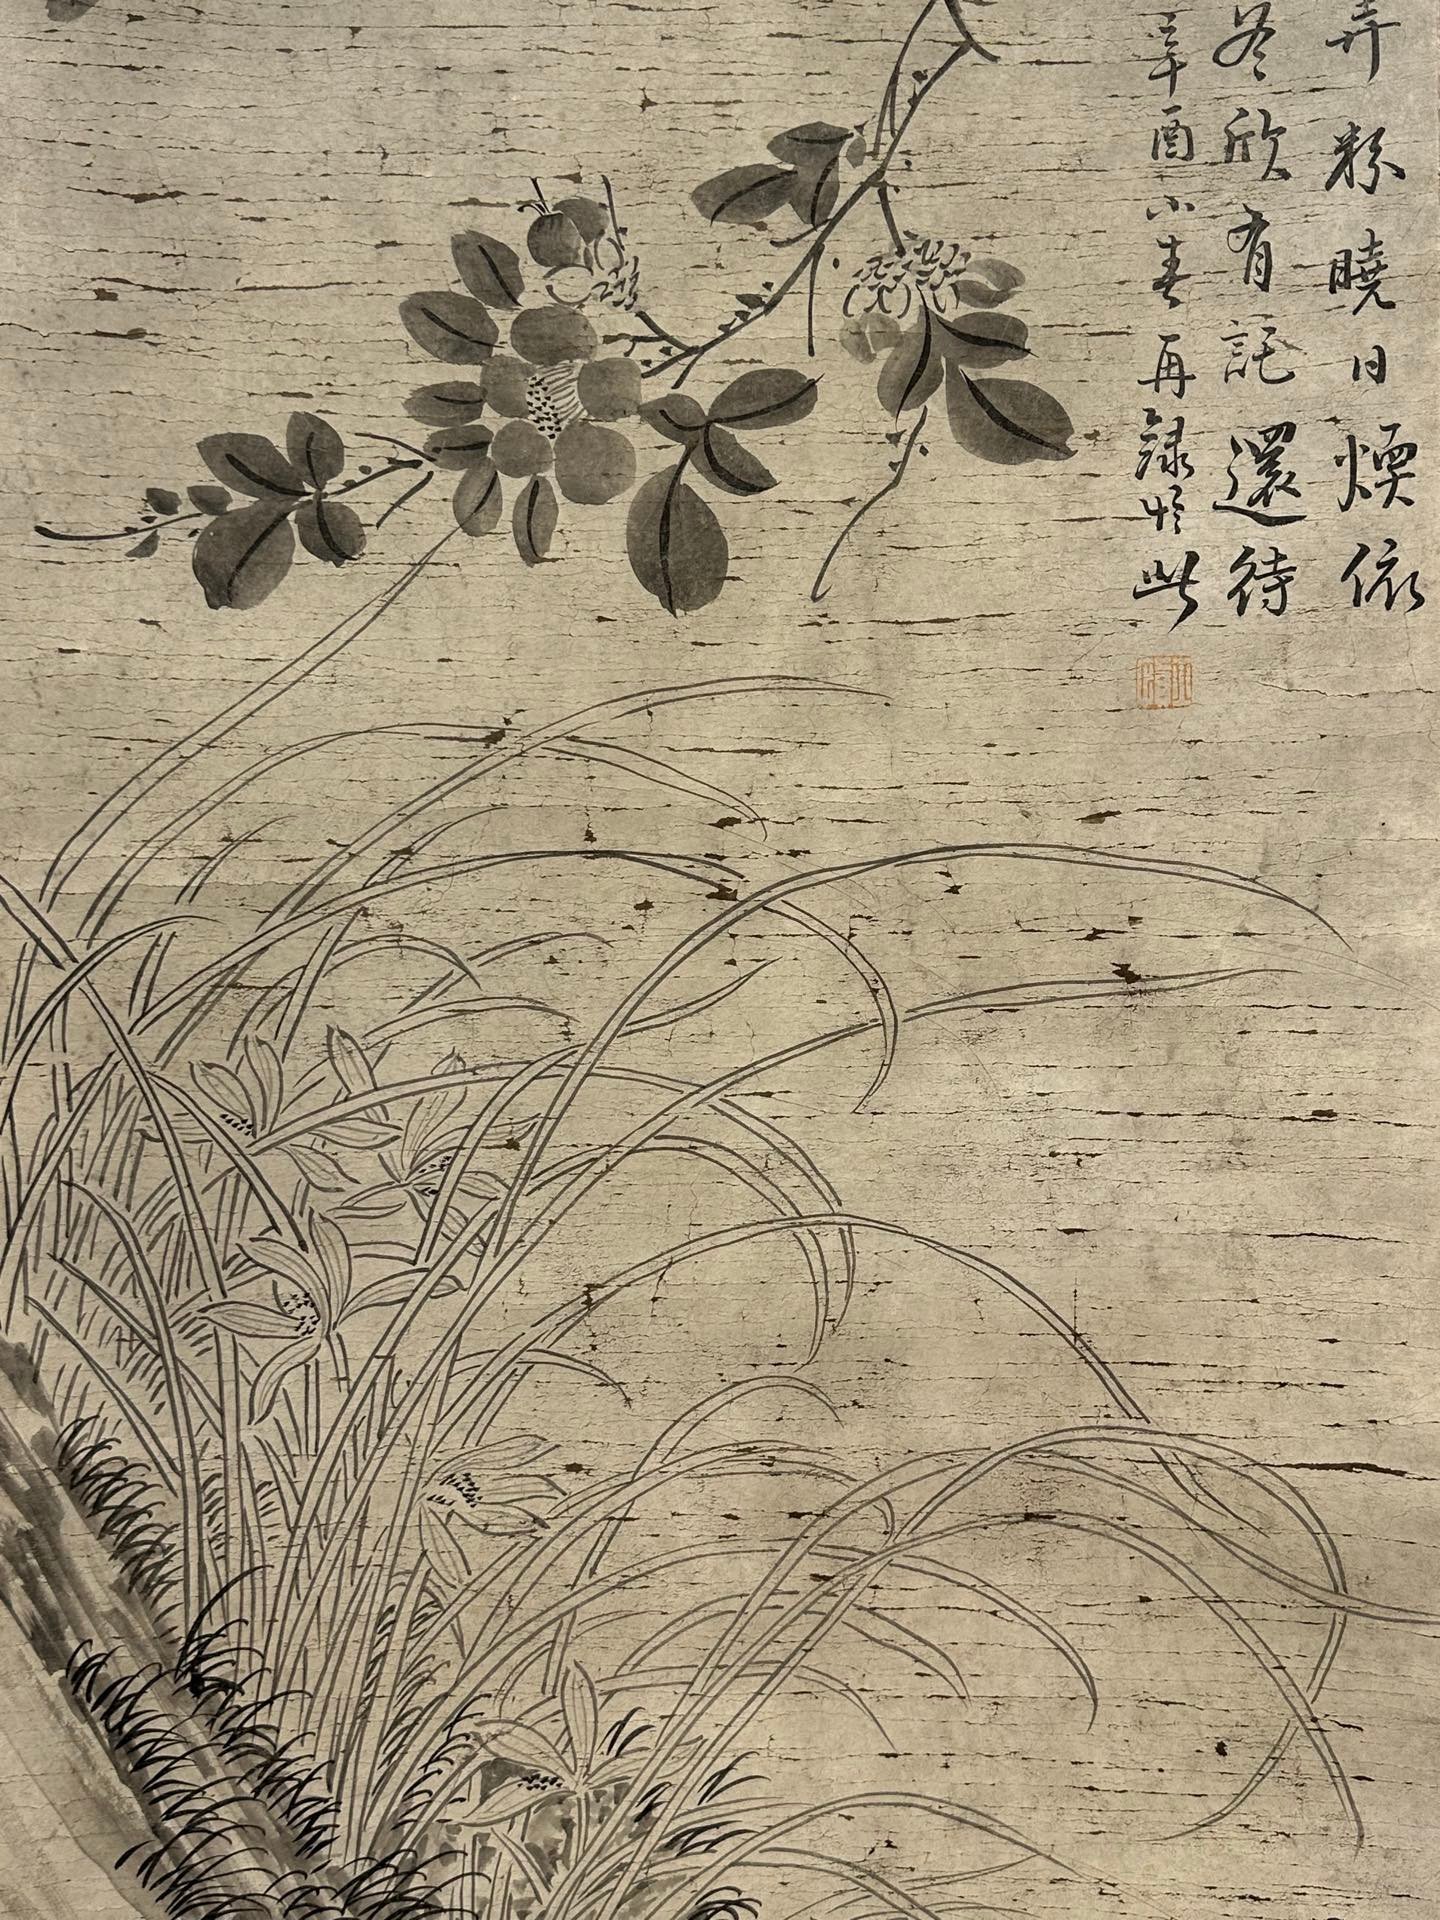 弄粉曉日煙依
冬欣有託還待
辛酉小春再錄於此